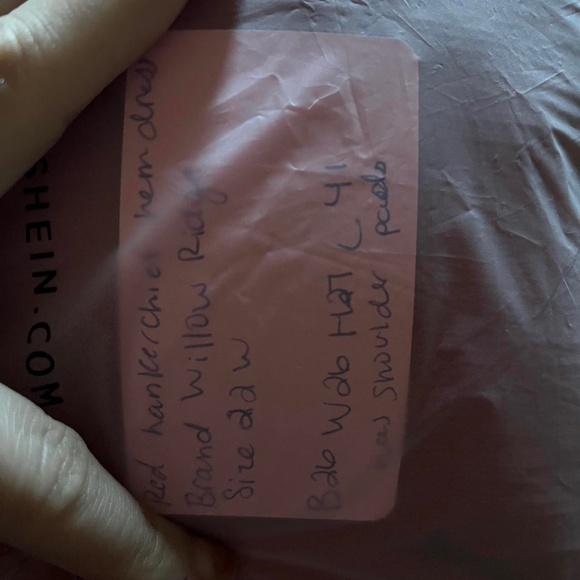 SHEIN.COM
Red hankerchief hem dress
Brand Willow Ridge
Size 22W
B26 W26 H27 L 41
has shoulder pads